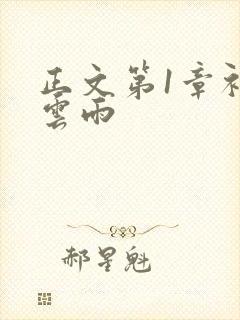 正文第1章初
雲雨
郝星魁